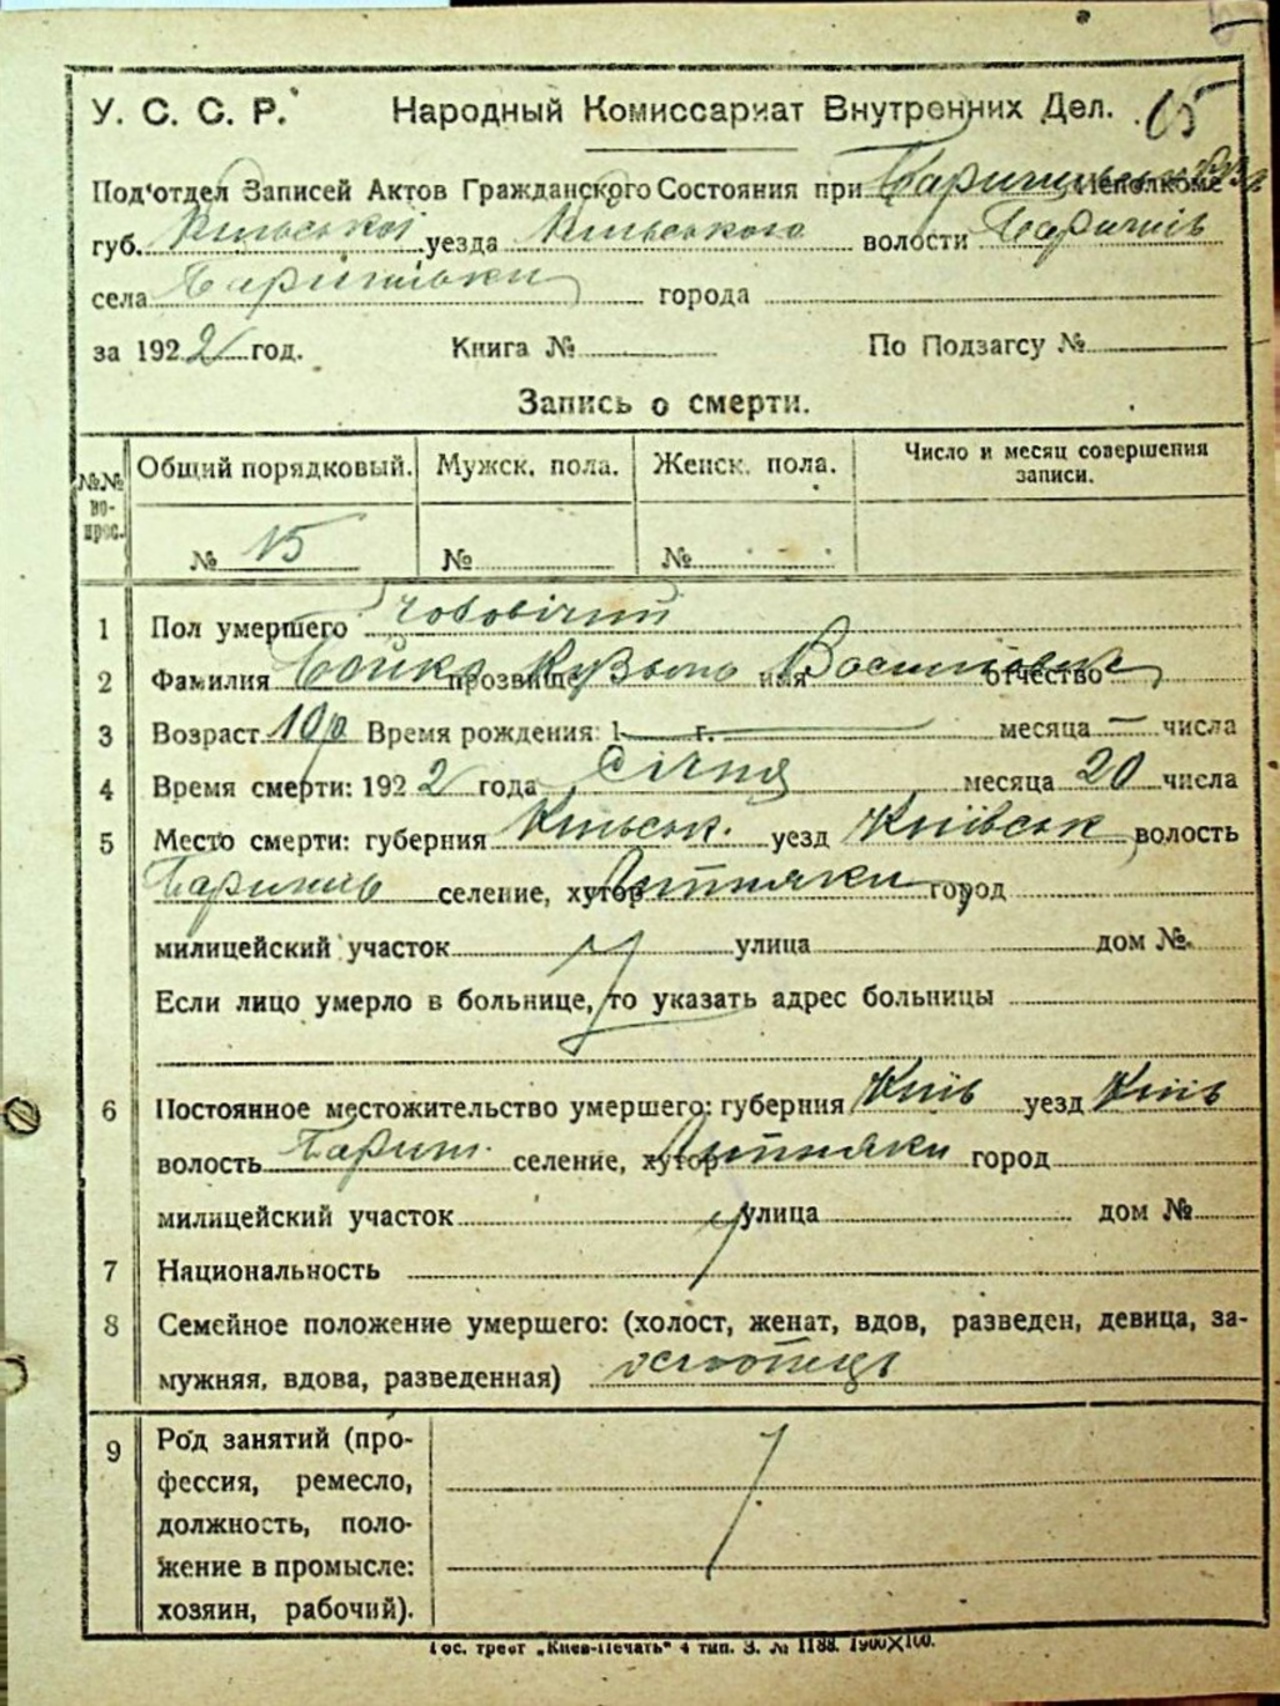 У. С. С. Р. Народный Комиссариат Внутренних Дел. 65
Под'отдел Записей Актов Гражданского Состояния при Исполкоме
губ. Київської уезда Київського волости Баришів
села Баришівки города
за 1922 год. Книга № По Подзагсу №
Запись о смерти.
№№ вопрос. Общий порядковый. Мужск. пола. Женск. пола. Число и месяц совершения записи.
№ 15 № №
1 Пол умершего Чоловічий
2 Фамилия Бойко прозвище Кузьма имя отчество
3 Возраст 10 р Время рождения: 1 г. месяца — числа
4 Время смерти: 1922 года Січня месяца 20 числа
5 Место смерти: губерния Київськ. уезд Київськ волость
Баришів селение, хутор Літняки город
милицейский участок улица дом №.
Если лицо умерло в больнице, то указать адрес больницы
6 Постоянное местожительство умершего: губерния Київ уезд Київ
волость Бариш. селение, хутор Літняки город
милицейский участок улица дом №
7 Национальность
8 Семейное положение умершего: (холост, женат, вдов, разведен, девица, за-
мужняя, вдова, разведенная)
9 Род занятий (про-
фессия, ремесло,
должность, поло-
жение в промысле:
хозяин, рабочий).
Гос. трест „Киев-Печать" 4 тип. З. № 1188. 1900×100.